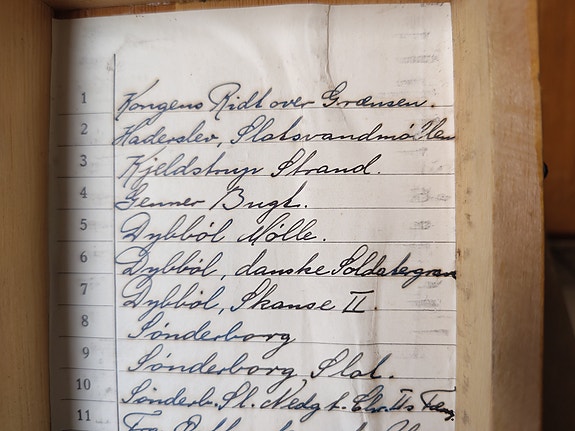 1 Kongens Ridt over Grænsen.
2 Haderslev, Slotsvandmøllen
3 Kjeldstrup Strand.
4 Genner Bugt.
5 Dybböl Mølle.
6 Dybböl, danske Soldatergrave
7 Dybböl, Skanse II.
8 Sønderborg
9 Sønderborg Slot.
10 Sønderb. Sl. Nedg t. Chr. IIs Fæng.
11